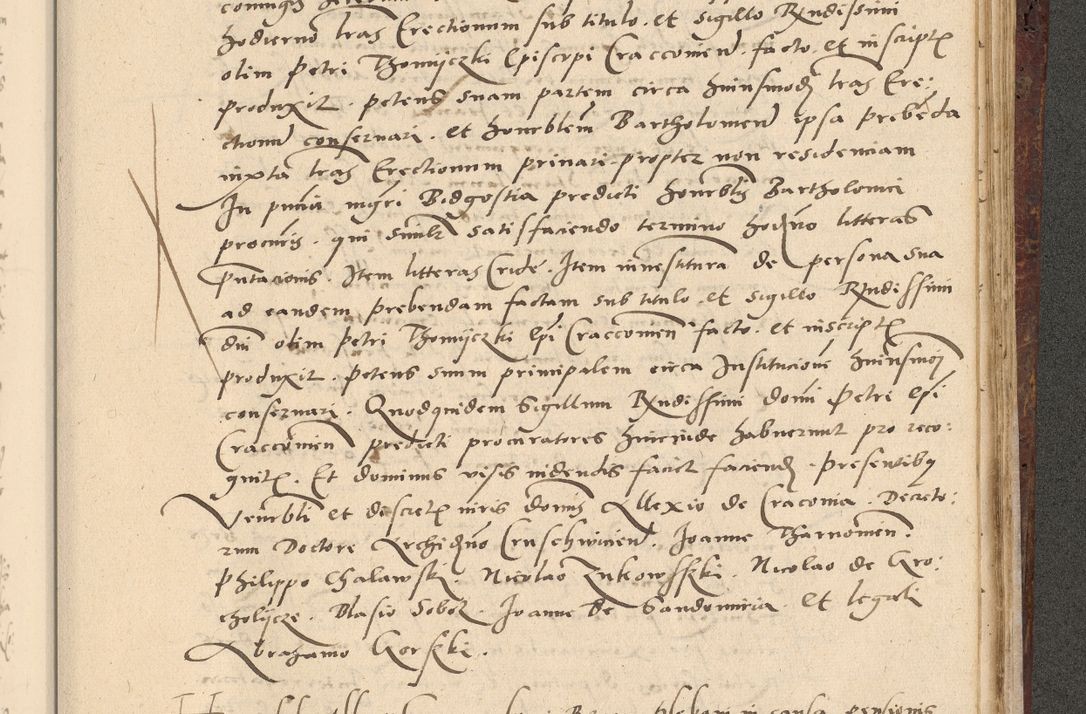 hodierno lras Erectionum sub titulo et Sigillo Rndissimi
olim Petri Thomyczki Episcopi Craccovien. facto. et in script
produxit. petens suam partem circa huiusmodi lras Ere:
ctionum conservari. et honrblem Bartholomeum ipsa prebeda
iuxta lras Erectionum privari propter non residenciam
In pncia mgri Bidgostia predicti honrblis Bartholomei
procuris. qui simlr satisfaciendo termino hodno litteras
pntacionis. Item litteras Cride. Item investitura de persona sua
ad eandem prebendam factam sub titulo et Sigillo Rndissimi
dni olim Petri Thomyczki Epi Craccovien facto. et inscript
produxit. petens suum principalem circa Institucione huiusmoi
conservari. Quodquidem Sigillum Rndissimi domi Petri Epi
Craccovien predicti procuratores hincinde habuerunt pro reco:
gnito. Et dominus visis videndis faciet faciend. presentibus
Venrbli et discretis viris domis Allexio de Craconia. Decreto:
rum Doctore Archidno Cruschwicien. Joanne Tharnowien.
Philippo Chalawski. Nicolao Zukowsski. Nicolao de Gro:
cholycze. Blasio Sobol. Joanne de Sandomiria. et legali
Abrahamo Gorsski.